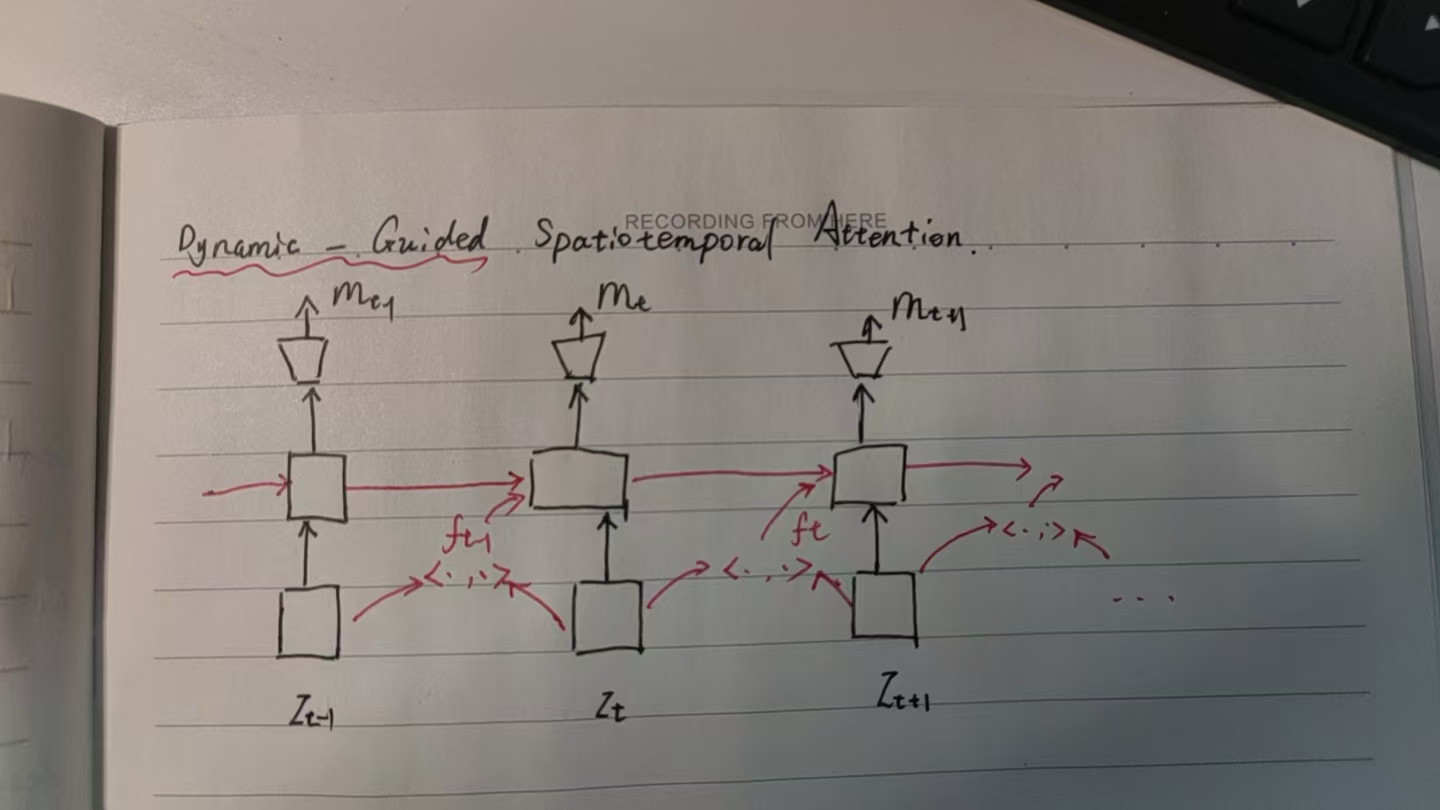 RECORDING FROM HERE
Dynamic - Guided Spatiotemporal Attention.
mt-1 mt mt+1
ft-1 ft
<·,·> <·,·> <·,·>
...
Zt-1 Zt Zt+1